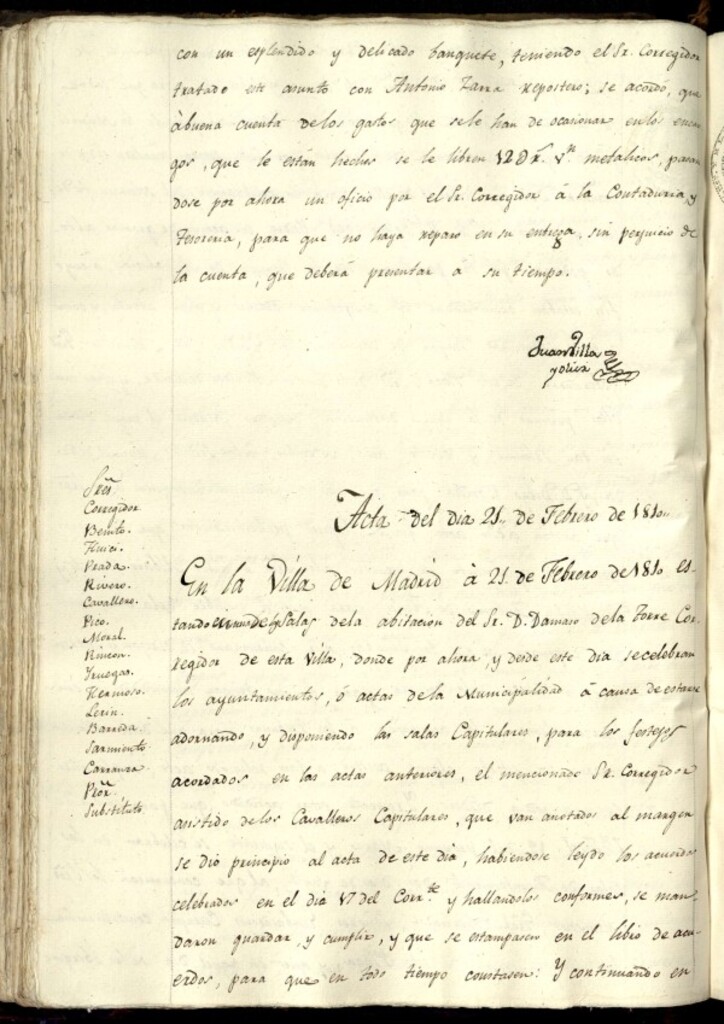 con un esplendido y delicado banquete, teniendo el Sr. Corregidor
tratado este asunto con Antonio Zarra repostero; se acordó, que
à buena cuenta de los gastos que se le han de ocasionar en los encar
gos, que le están hechos se le libren 12 D r.s v.n metalicos, pasan
dose por ahora un oficio por el Sr. Corregidor à la Contaduria, y
Tesoreria, para que no haya reparo en su entrega, sin perjuicio de
la cuenta, que deberà presentar à su tiempo.
Juan Villa
y Olier
Acta del dia 21,, de Febrero de 1810,,
Sres.
Corregidor
Benito.
Huici.
Prada.
Rivero.
Cavallero.
Pico.
Moral.
Rincon.
Yruegas.
Hermoso.
Lerin.
Barreda.
Sarmiento
Carranza.
Pror.
Substituto.
En la Villa de Madrid à 21,, de Febrero de 1810 es-
tando en una de las Salas de la abitacion del Sr. D. Damaso de la Torre Cor-
regidor de esta Villa, donde por ahora, y desde este dia se celebran
los ayuntamientos, ò actas de la Municipalidad à causa de estarse
adornando, y disponiendo las salas Capitulares, para los festejos
acordados en las actas anteriores, el mencionado Sr. Corregidor
asistido de los Cavalleros Capitulares, que van anotados al margen
se dio principio al acta de este dia, habiendose leydo los acuerdos
celebrados en el dia 17 del Corr.te y hallandolos conformes, se man-
daron guardar, y cumplir, y que se estampasen en el libro de acu-
erdos, para que en todo tiempo constasen: Y continuando en